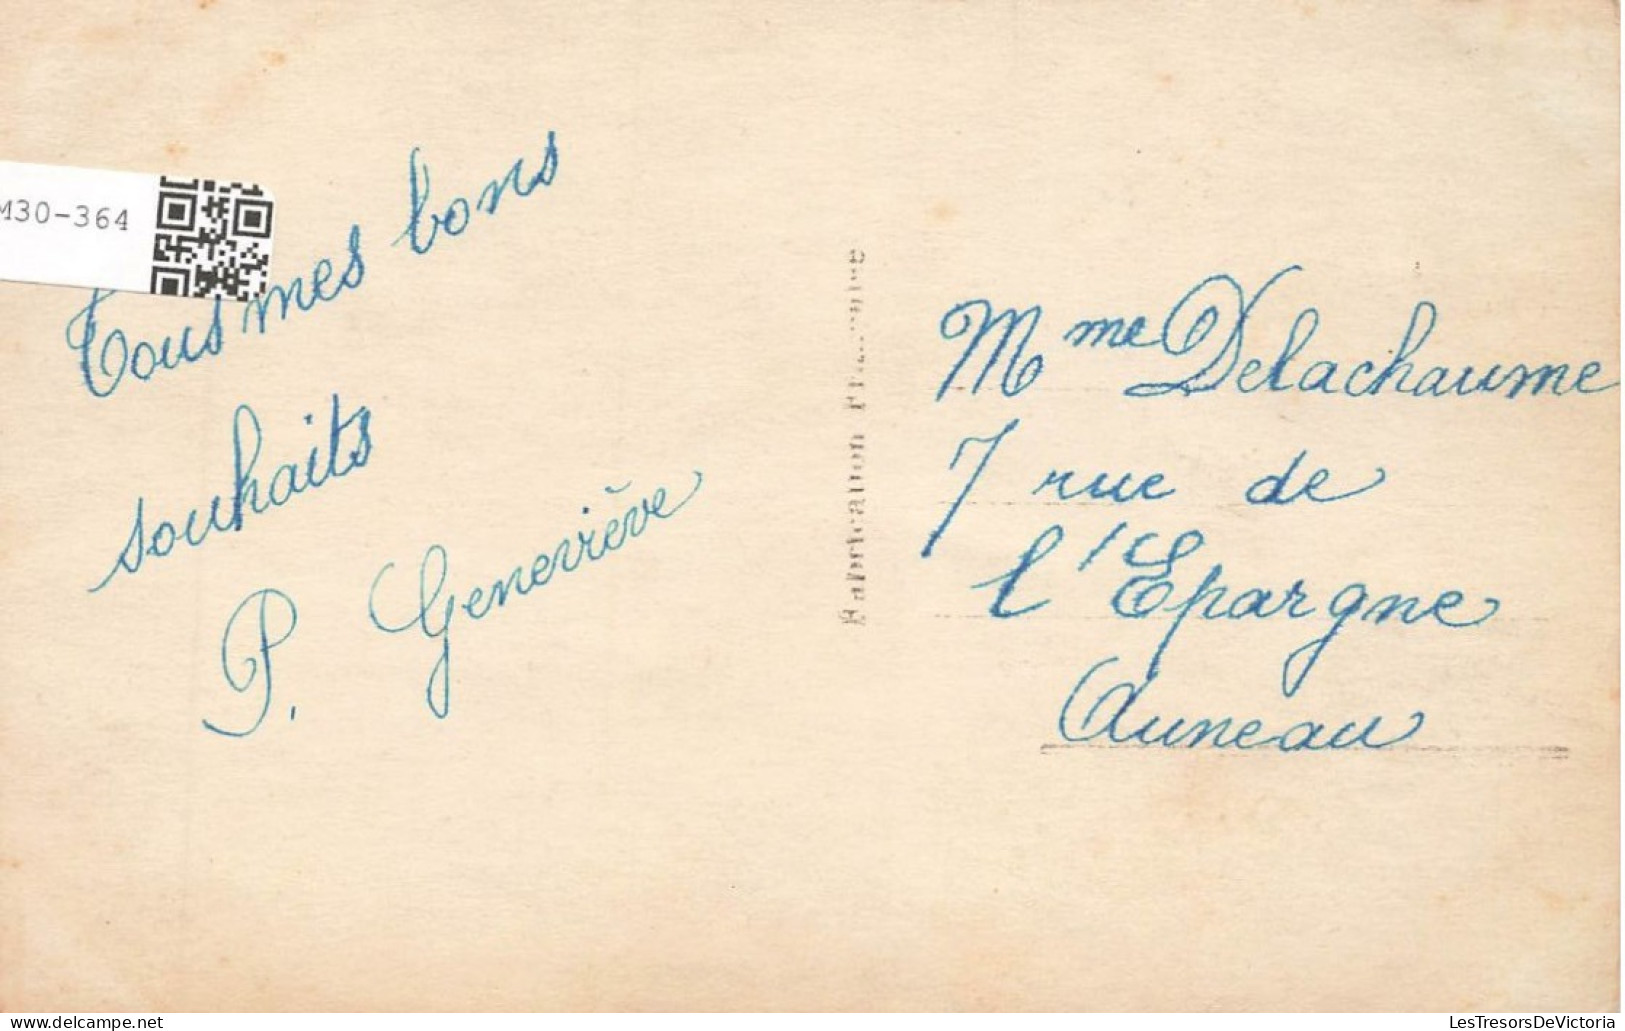 M30-364
Tous mes bons
souhaits
P. Geneviève
Fabrication
Mme Delachaume
7 rue de
l'Epargne
Auneau
www.delcampe.net
LesTresorsDeVictoria